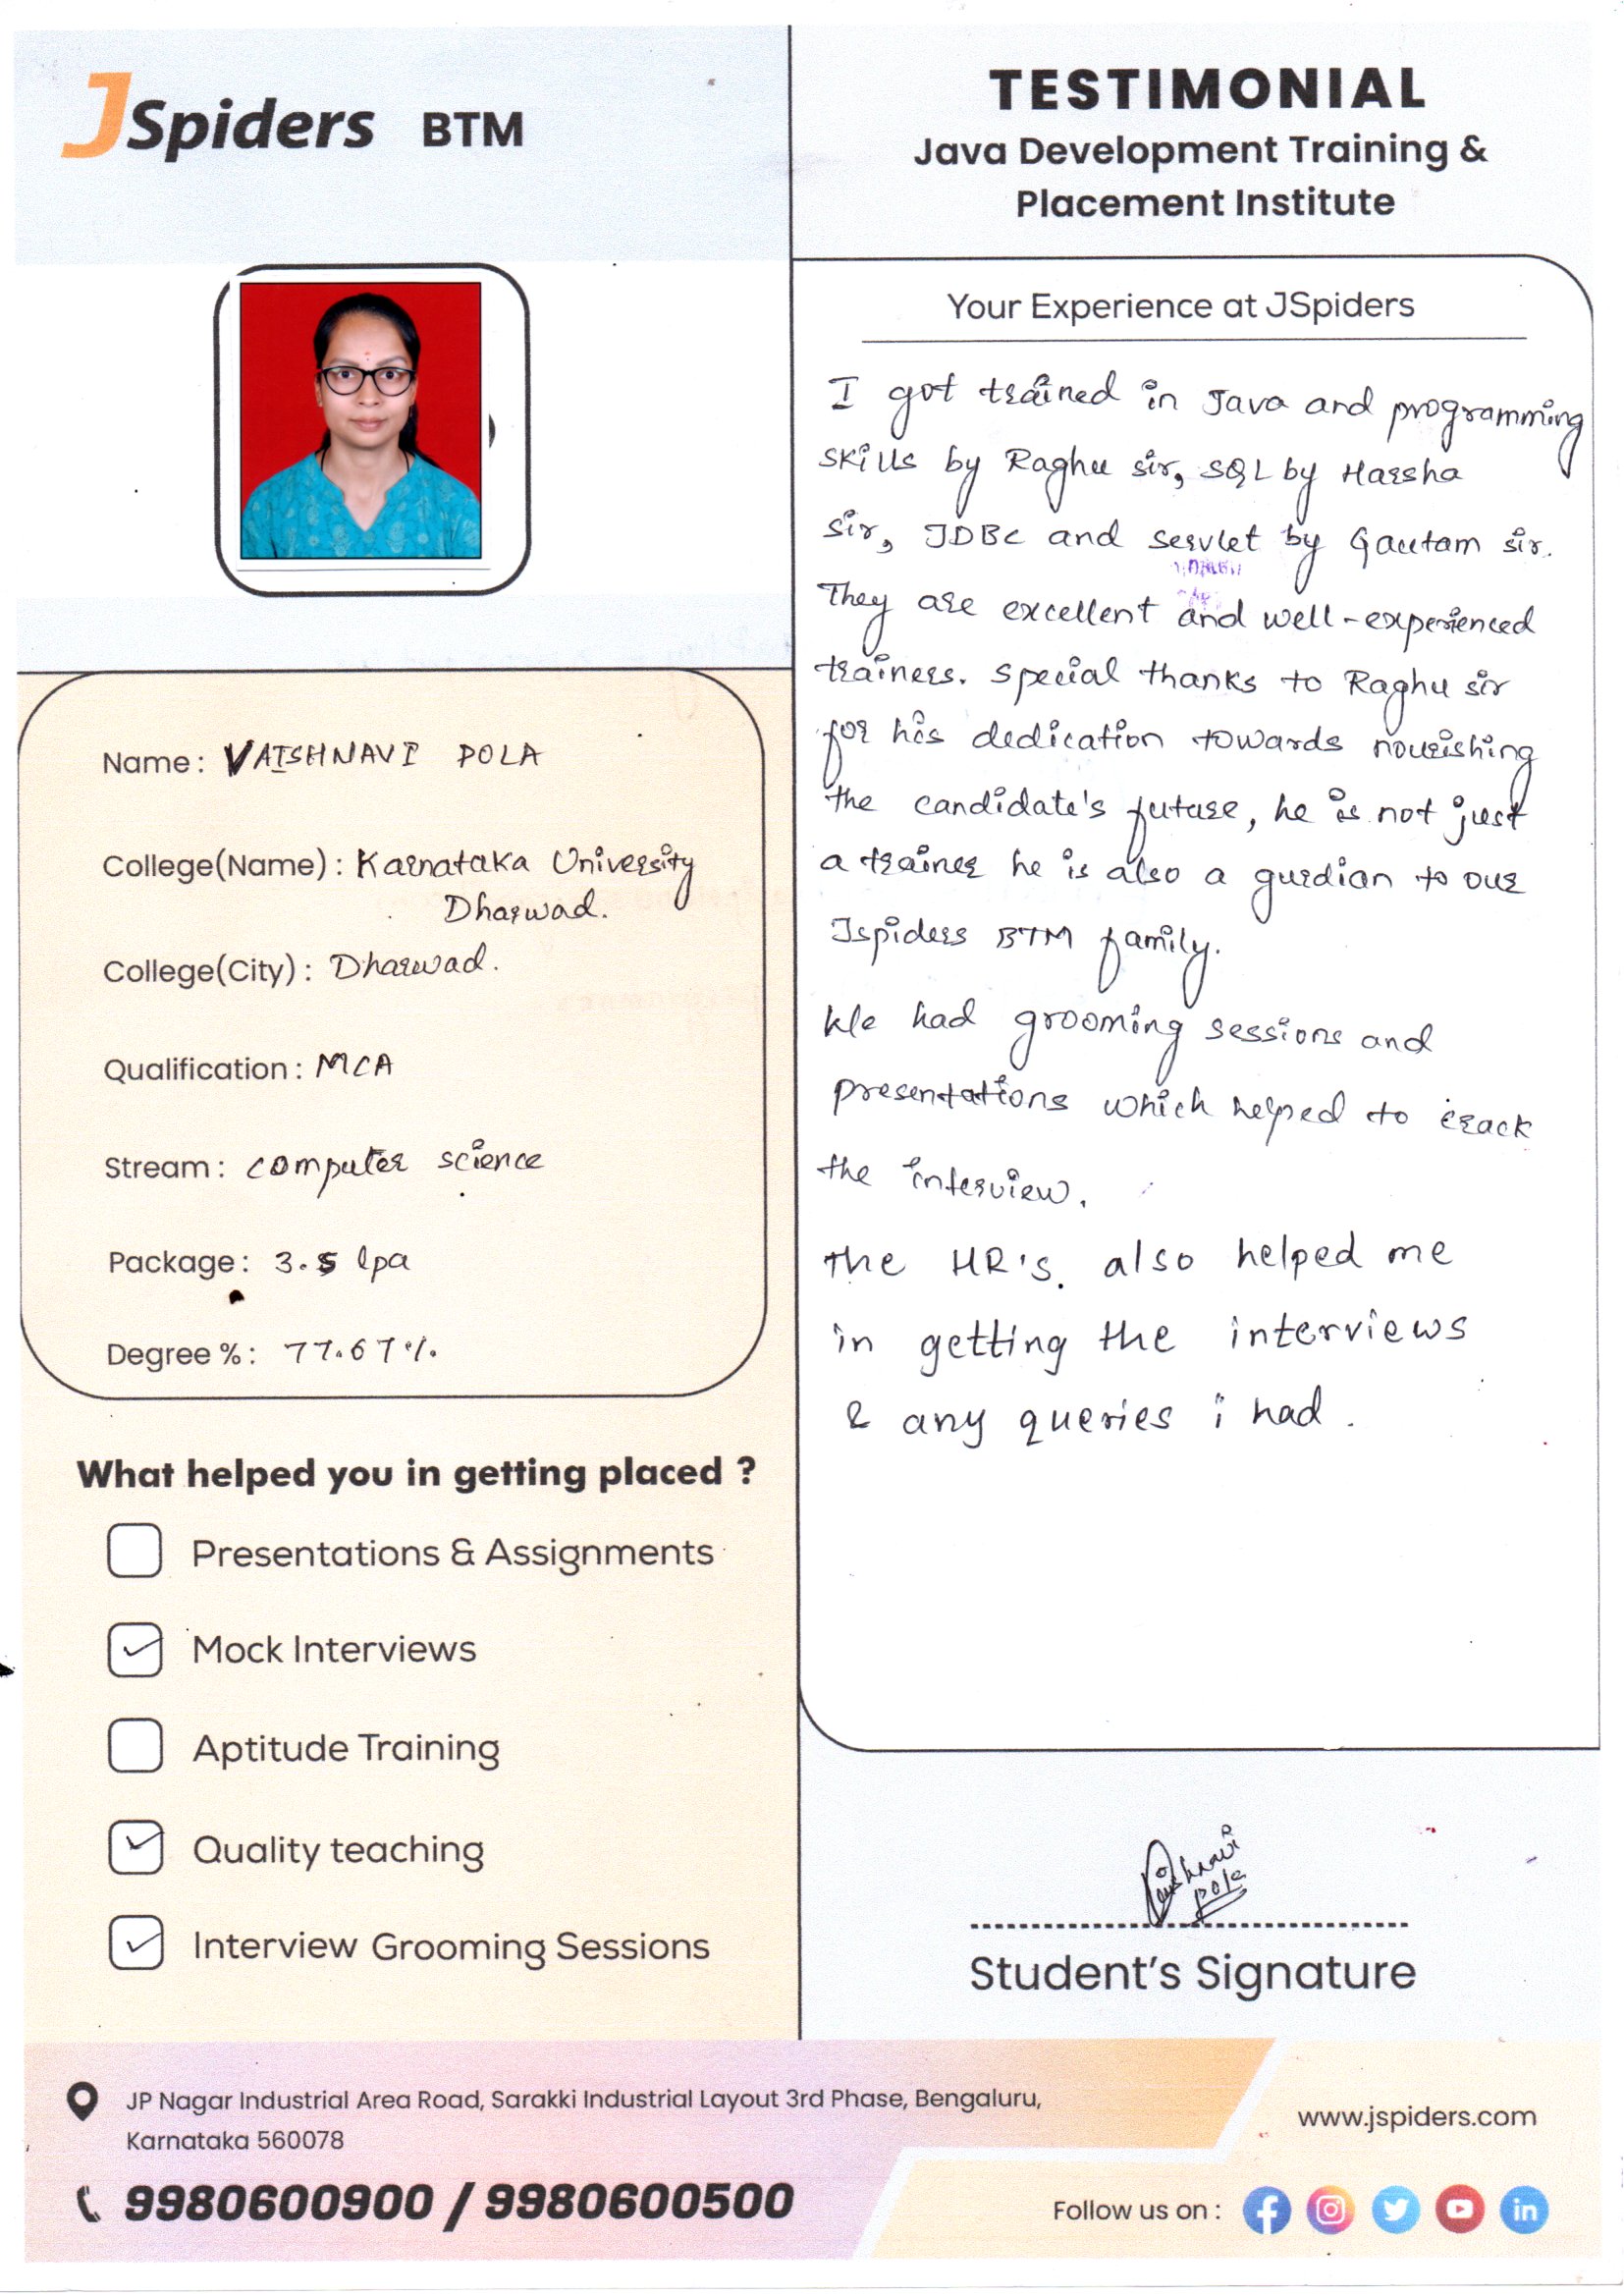 JSpiders BTM
TESTIMONIAL
Java Development Training &
Placement Institute
Name: VAISHNAVI POLA
College(Name): Karnataka University
Dharwad.
College(City): Dharwad.
Qualification: MCA
Stream: computer science
Package: 3.5 lpa
Degree %: 77.67%.
What helped you in getting placed ?
Presentations & Assignments
Mock Interviews
Aptitude Training
Quality teaching
Interview Grooming Sessions
Your Experience at JSpiders
I got trained in Java and programming
skills by Raghu sir, SQL by Harsha
sir, JDBC and servlet by Gautam sir.
They are excellent and well-experienced
trainers. special thanks to Raghu sir
for his dedication towards nourishing
the candidate's future, he is not just
a trainer he is also a gurdian to our
Jspiders BTM family.
We had grooming sessions and
presentations which helped to crack
the interview.
The HR's. also helped me
in getting the interviews
& any queries i had.
Vaishnavi
pola
Student's Signature
JP Nagar Industrial Area Road, Sarakki Industrial Layout 3rd Phase, Bengaluru,
Karnataka 560078
9980600900 / 9980600500
www.jspiders.com
Follow us on :